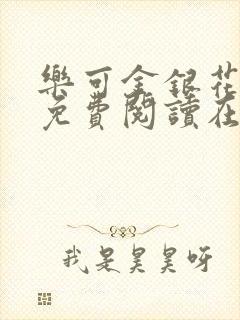 樂可金銀花
免費閱讀在
我是昊昊呀